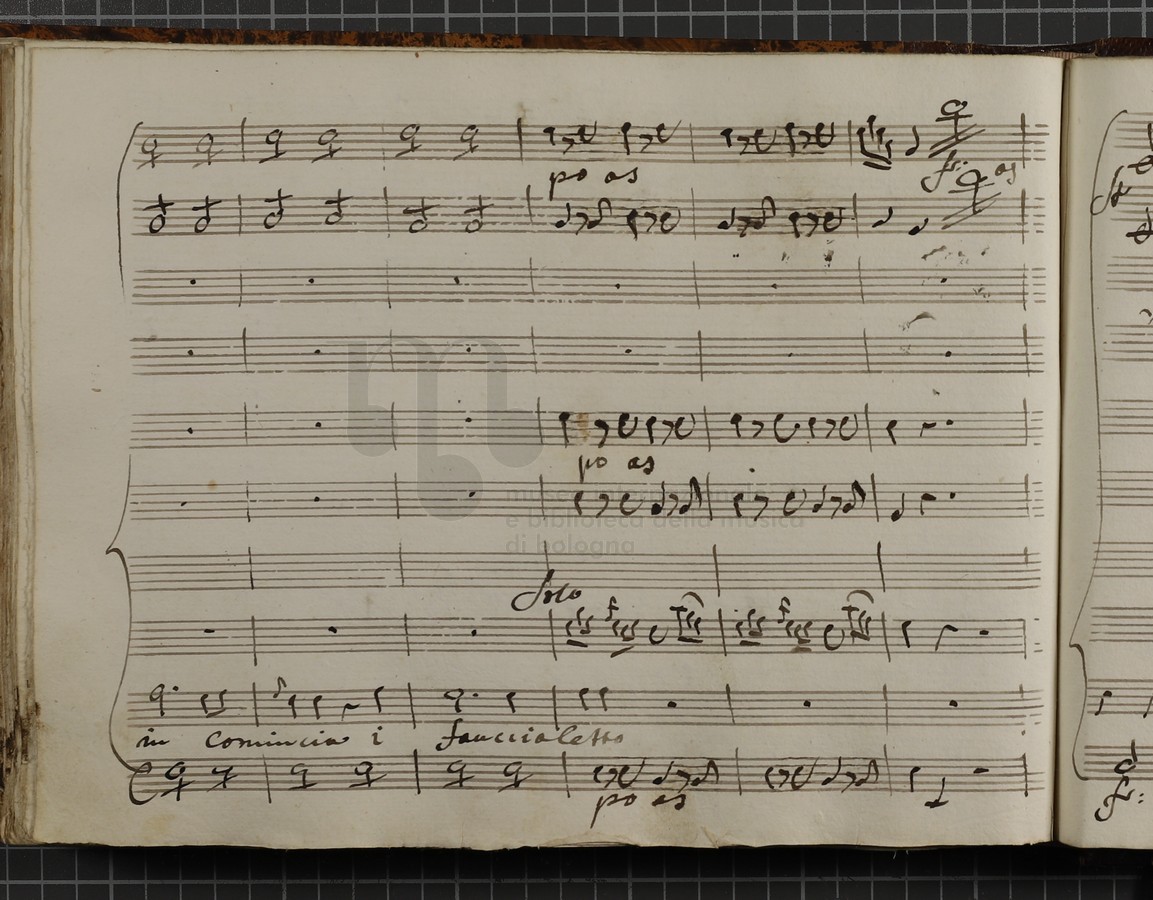 po as
fr: as
po as
museo internazionale
e biblioteca della musica
di bologna
Solo
in Comincia i fauccialetto
po as
fr: